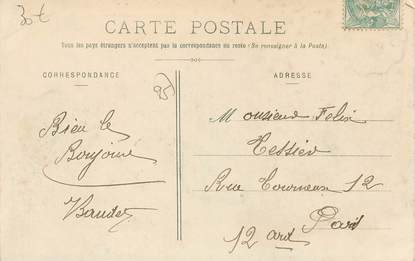 30€
CARTE POSTALE
Tous les pays étrangers n'acceptent pas la correspondance du recto (Se renseigner à la Poste)
CORRESPONDANCE
ADRESSE
Bien le
Bonjour
Baudet
Monsieur Felix
Tessier
Rue Tourneux 12
Paris
12 ard